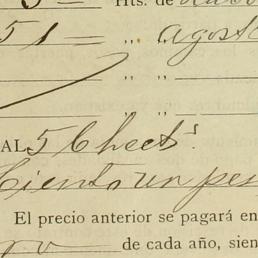 5= Hts. de
51= " " agosto
" "
AL 5 Chect.s
Ciento un pe
El precio anterior se pagará en
de cada año, sien